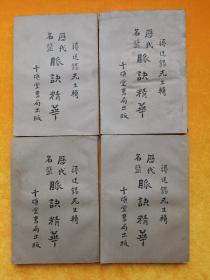 蔣廷錫先生輯
歷代
名醫
脈訣精華
千頃堂書局出版
蔣廷錫先生輯
歷代
名醫
脈訣精華
千頃堂書局出版
蔣廷錫先生輯
歷代
名醫
脈訣精華
千頃堂書局出版
蔣廷錫先生輯
歷代
名醫
脈訣精華
千頃堂書局出版